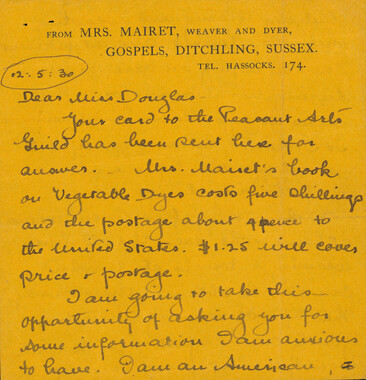 FROM MRS. MAIRET, WEAVER AND DYER,
GOSPELS, DITCHLING, SUSSEX.
TEL. HASSOCKS. 174.
12-5-30
Dear Miss Douglas
Your card to the Peasant Arts
Guild has been sent here for
answer. — Mrs. Mairet's book
on Vegetable Dyes costs five shillings
and the postage about 4 pence to
the United States. $1.25 will cover
price & postage.
I am going to take this
opportunity of asking you for
some information I am anxious
to have. I am an American,